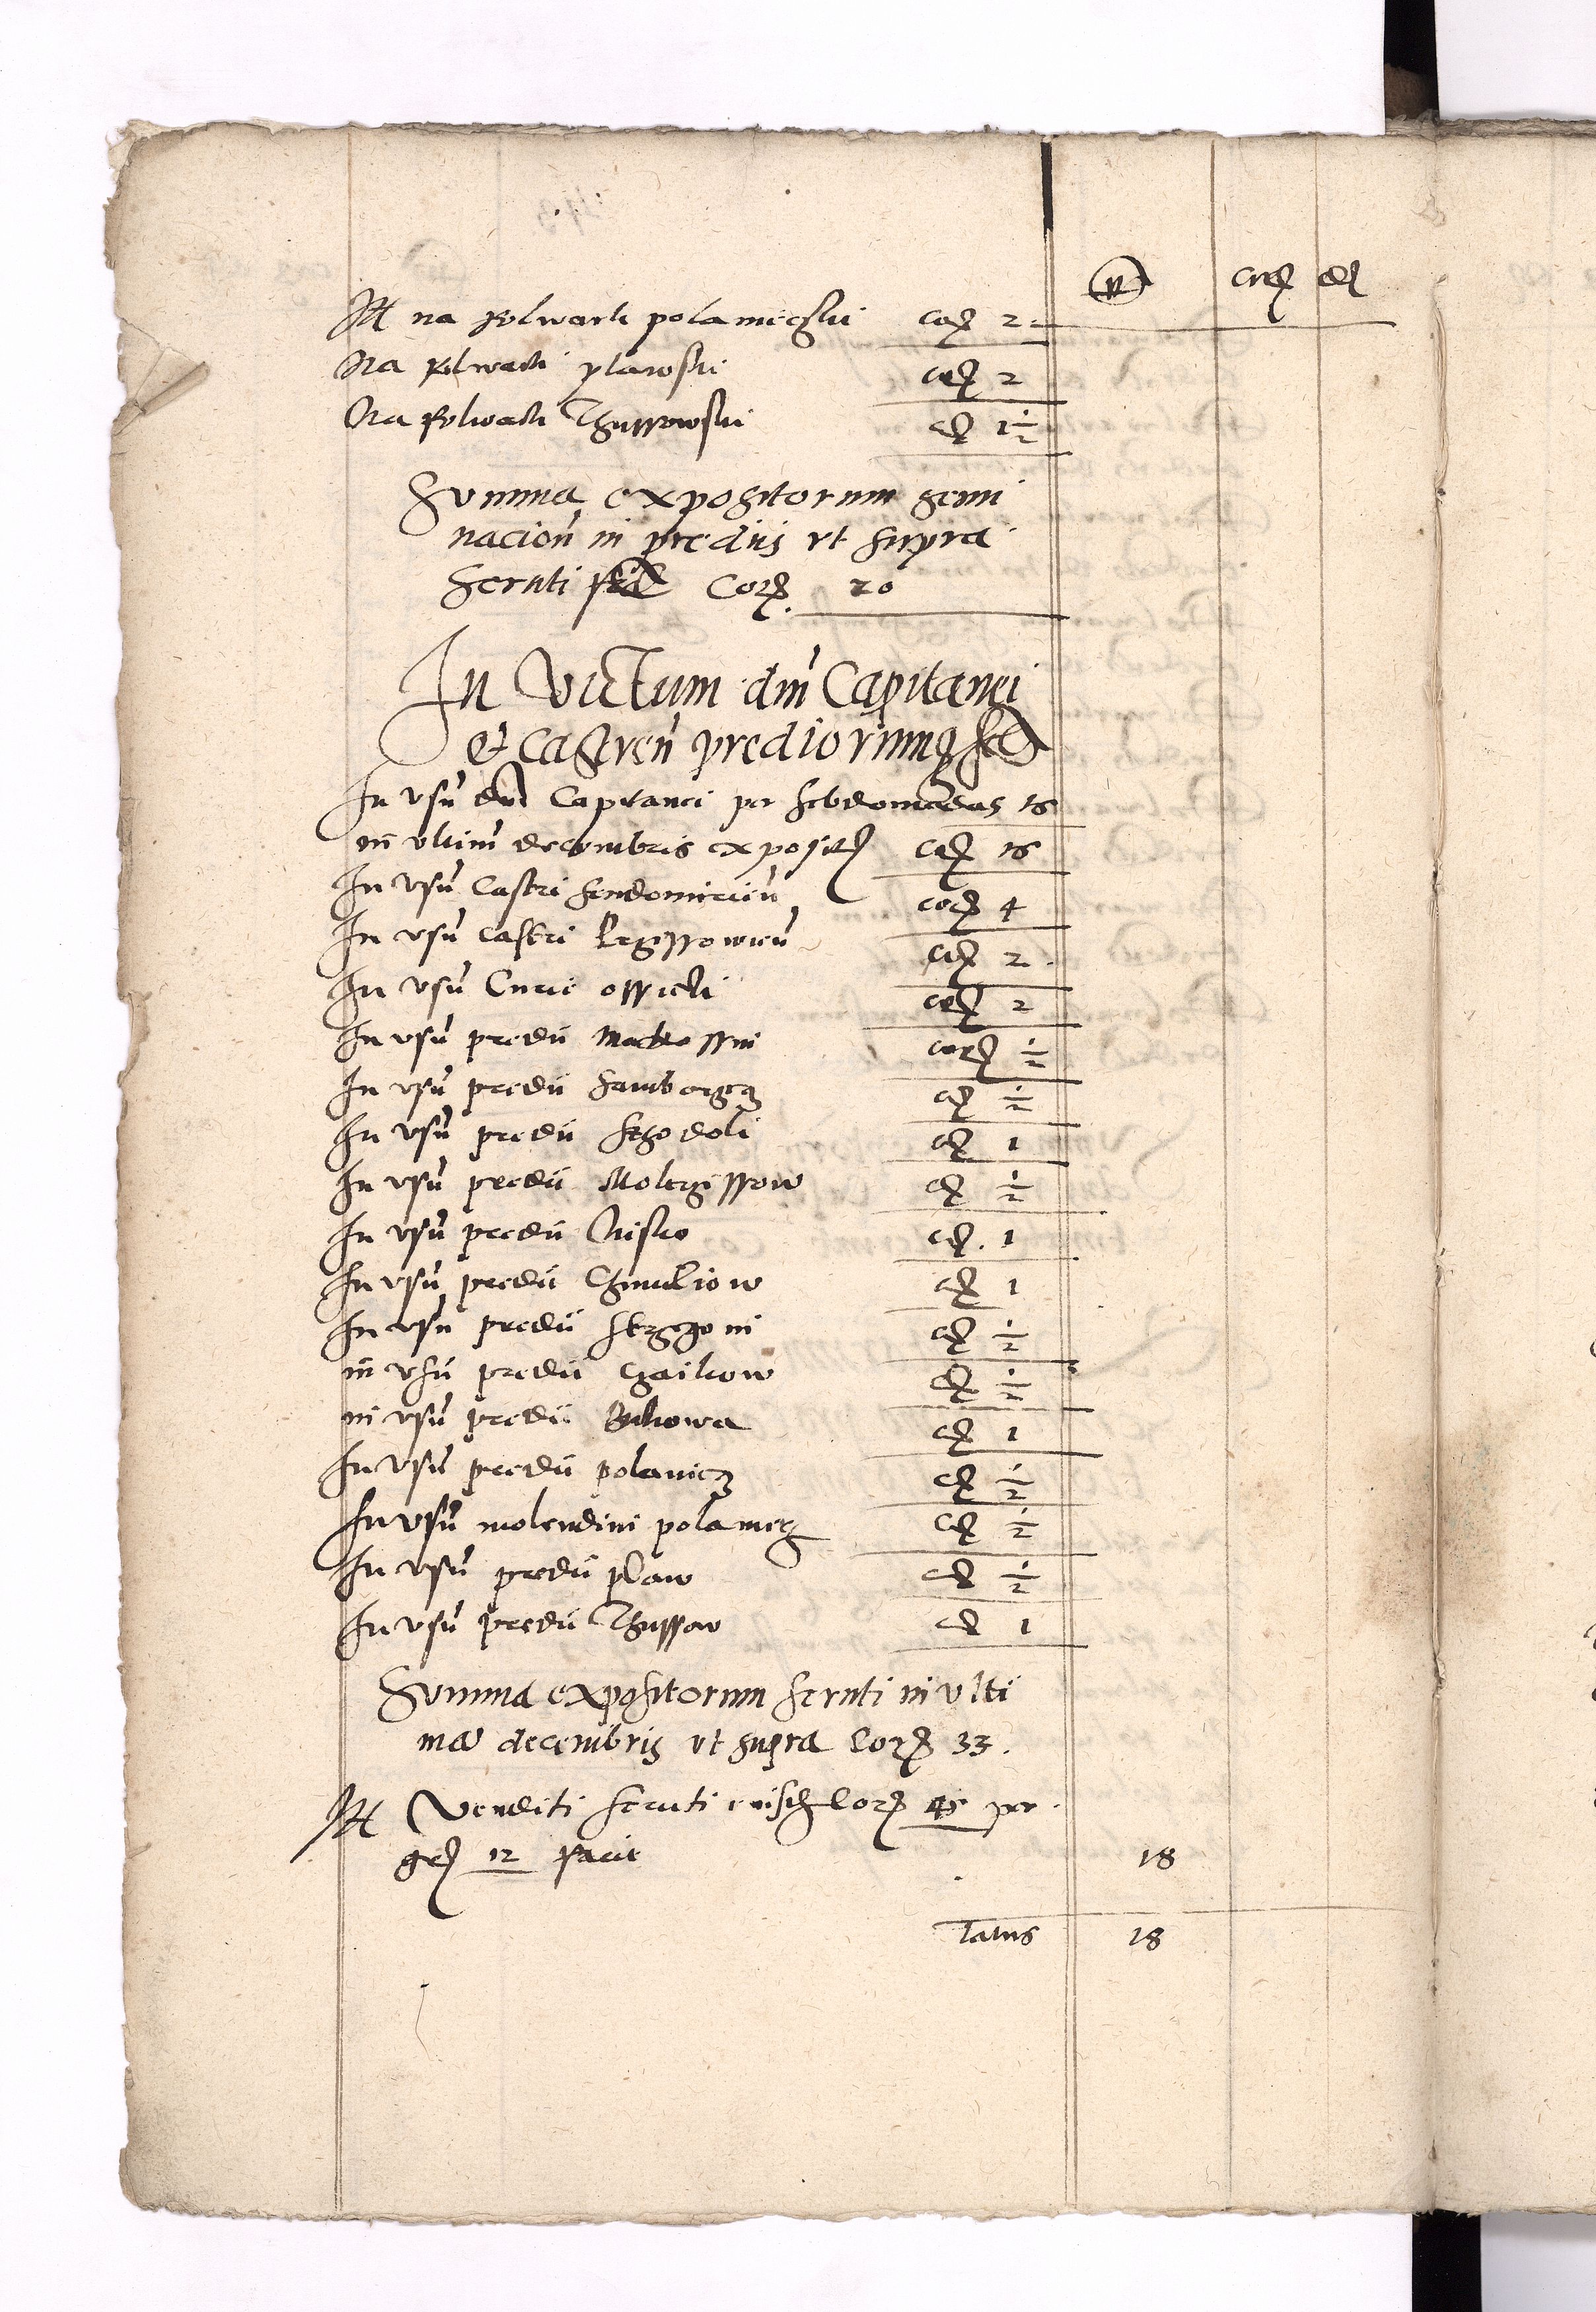 It na folwark polanieczki cor 2
Na folwark plawski cor 2
Na folwark Thussowski cor 1 1/2
Summa expositorum semi
nacioñ in predijs vt supra
Seruti Cor 20
In victum dñi Capitanei
et castreñ prediorumq
In vsũ dñi Capitanei per Sebdomadas 16
in vltim̃ decembris exposit cor 16
In vsũ Castri Sendomirieñ cor 4
In vsũ castri cor 2
In vsũ Curie ossieki cor 2
In vsũ predii cor 1/2
In vsũ predii Samborzecz cor 1/2
In vsũ predii cor 1
In vsũ predii Mokrzissow cor 1/2
In vsũ predii Nisko cor 1
In vsũ predii Chmielow cor 1
In vsũ predii cor 1/2
in vsũ predii Czaikow cor 1/2
in vsũ predii Bukowa cor 1
In vsũ predii polaniecz cor 1/2
In vsũ molendini polaniecz cor 1/2
In vsũ predii plaw cor 1/2
In vsũ predii Thussow cor 1
Summa expositorum seruti in vlti
ma decembris vt supra Cor 33
It Venditi seruti cor 45 per
gr 12 facit 18
Latus 18